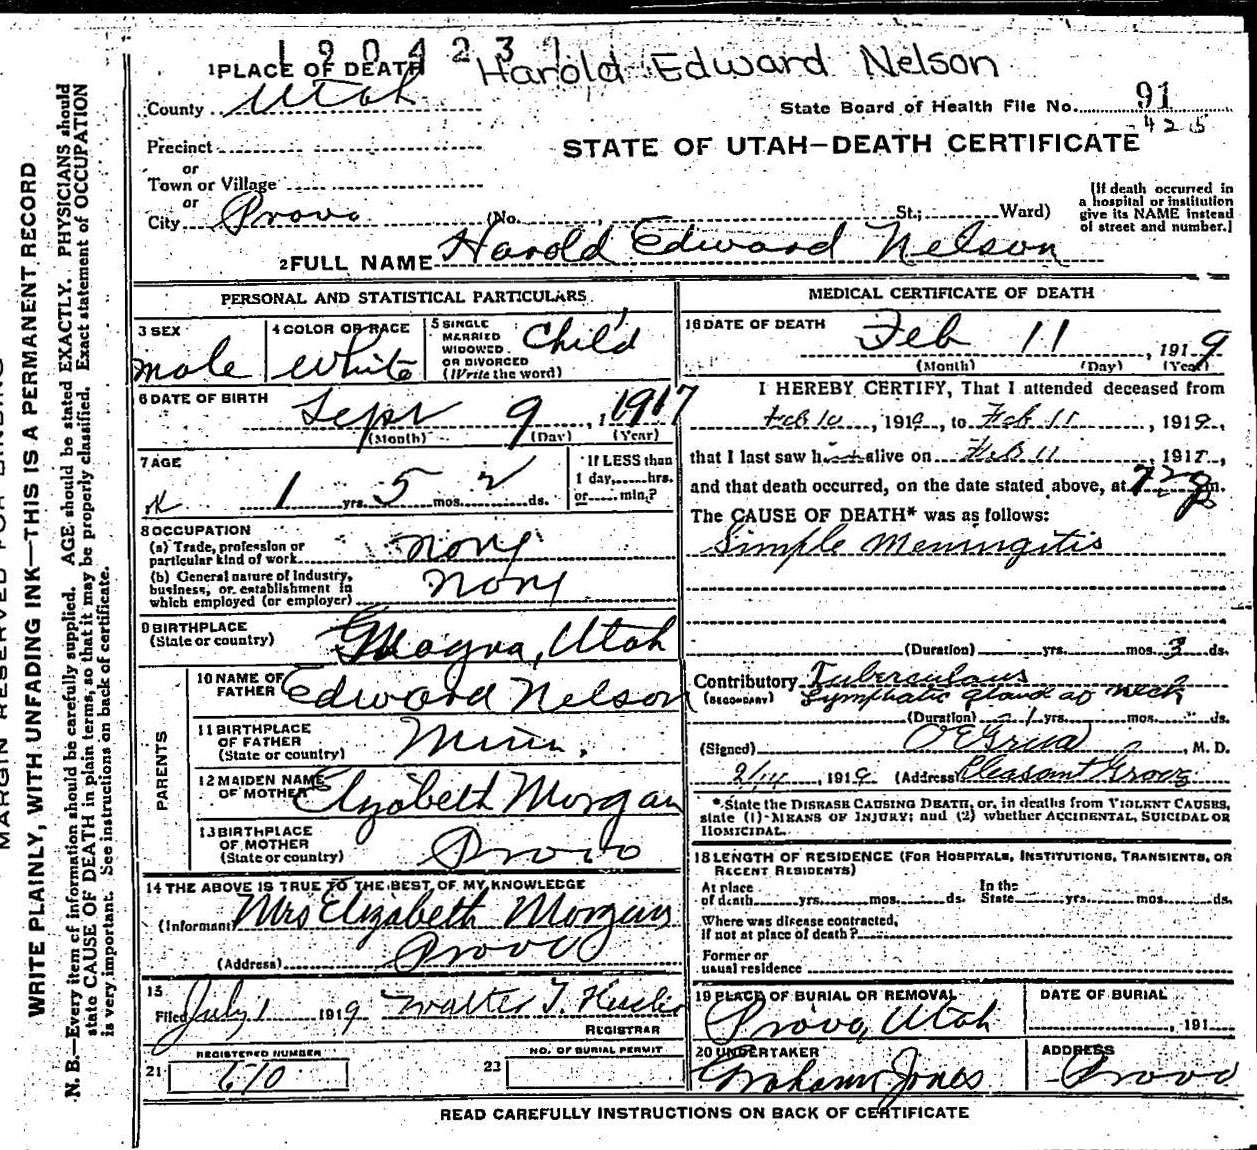 1904231
Harold Edward Nelson
1 PLACE OF DEATH
County Utah
State Board of Health File No. 91
425
STATE OF UTAH—DEATH CERTIFICATE
Precinct
or
Town or Village
or
City Provo (No. , St.; Ward)
(If death occurred in
a hospital or institution
give its NAME instead
of street and number.]
2 FULL NAME Harold Edward Nelson
PERSONAL AND STATISTICAL PARTICULARS
3 SEX
male
4 COLOR OR RACE
White
5 SINGLE
MARRIED
WIDOWED
OR DIVORCED
(Write the word)
Child
6 DATE OF BIRTH
Sept 9, 1917
(Month) (Day) (Year)
7 AGE
1 yrs. 5 mos. 2 ds.
If LESS than
1 day, hrs.
or min.?
8 OCCUPATION
(a) Trade, profession or
particular kind of work none
(b) General nature of Industry,
business, or establishment in
which employed (or employer) none
9 BIRTHPLACE
(State or country) Magna, Utah
PARENTS
10 NAME OF
FATHER Edward Nelson
11 BIRTHPLACE
OF FATHER
(State or country) Minn.
12 MAIDEN NAME
OF MOTHER Elizabeth Morgan
13 BIRTHPLACE
OF MOTHER
(State or country) Provo
14 THE ABOVE IS TRUE TO THE BEST OF MY KNOWLEDGE
(Informant Mrs Elizabeth Morgan
(Address) Provo
15
Filed July 1 1919 Walter T.
REGISTRAR
REGISTERED NUMBER
21
NO. OF BURIAL PERMIT
22
MEDICAL CERTIFICATE OF DEATH
16 DATE OF DEATH
Feb 11, 1919
(Month) (Day) (Year)
I HEREBY CERTIFY, That I attended deceased from
Feb 10, 1919, to Feb 11, 1919,
that I last saw h alive on Feb 11, 191 ,
and that death occurred, on the date stated above, at m.
The CAUSE OF DEATH* was as follows:
Simple Meningitis
(Duration) yrs. mos. 3 ds.
Contributory Tuberculous
(SECONDARY) Lymphatic gland of neck
(Duration) 1 yrs. mos. ds.
(Signed) , M. D.
2/14, 1919 (Address) Pleasant Grove
*State the DISEASE CAUSING DEATH, or, in deaths from VIOLENT CAUSES,
state (1) MEANS OF INJURY; and (2) whether ACCIDENTAL, SUICIDAL OR
HOMICIDAL.
18 LENGTH OF RESIDENCE (FOR HOSPITALS, INSTITUTIONS, TRANSIENTS, OR
RECENT RESIDENTS)
At place
of death yrs. mos. ds.
In the
State yrs. mos. ds.
Where was disease contracted,
if not at place of death?
Former or
usual residence
19 PLACE OF BURIAL OR REMOVAL
Provo, Utah
DATE OF BURIAL
, 191
20 UNDERTAKER
Graham Jones
ADDRESS
Provo
READ CAREFULLY INSTRUCTIONS ON BACK OF CERTIFICATE
MARGIN RESERVED FOR BINDING
WRITE PLAINLY, WITH UNFADING INK—THIS IS A PERMANENT RECORD
N. B.—Every item of information should be carefully supplied. AGE should be stated EXACTLY. PHYSICIANS should
state CAUSE OF DEATH in plain terms, so that it may be properly classified. Exact statement of OCCUPATION
is very important. See instructions on back of certificate.